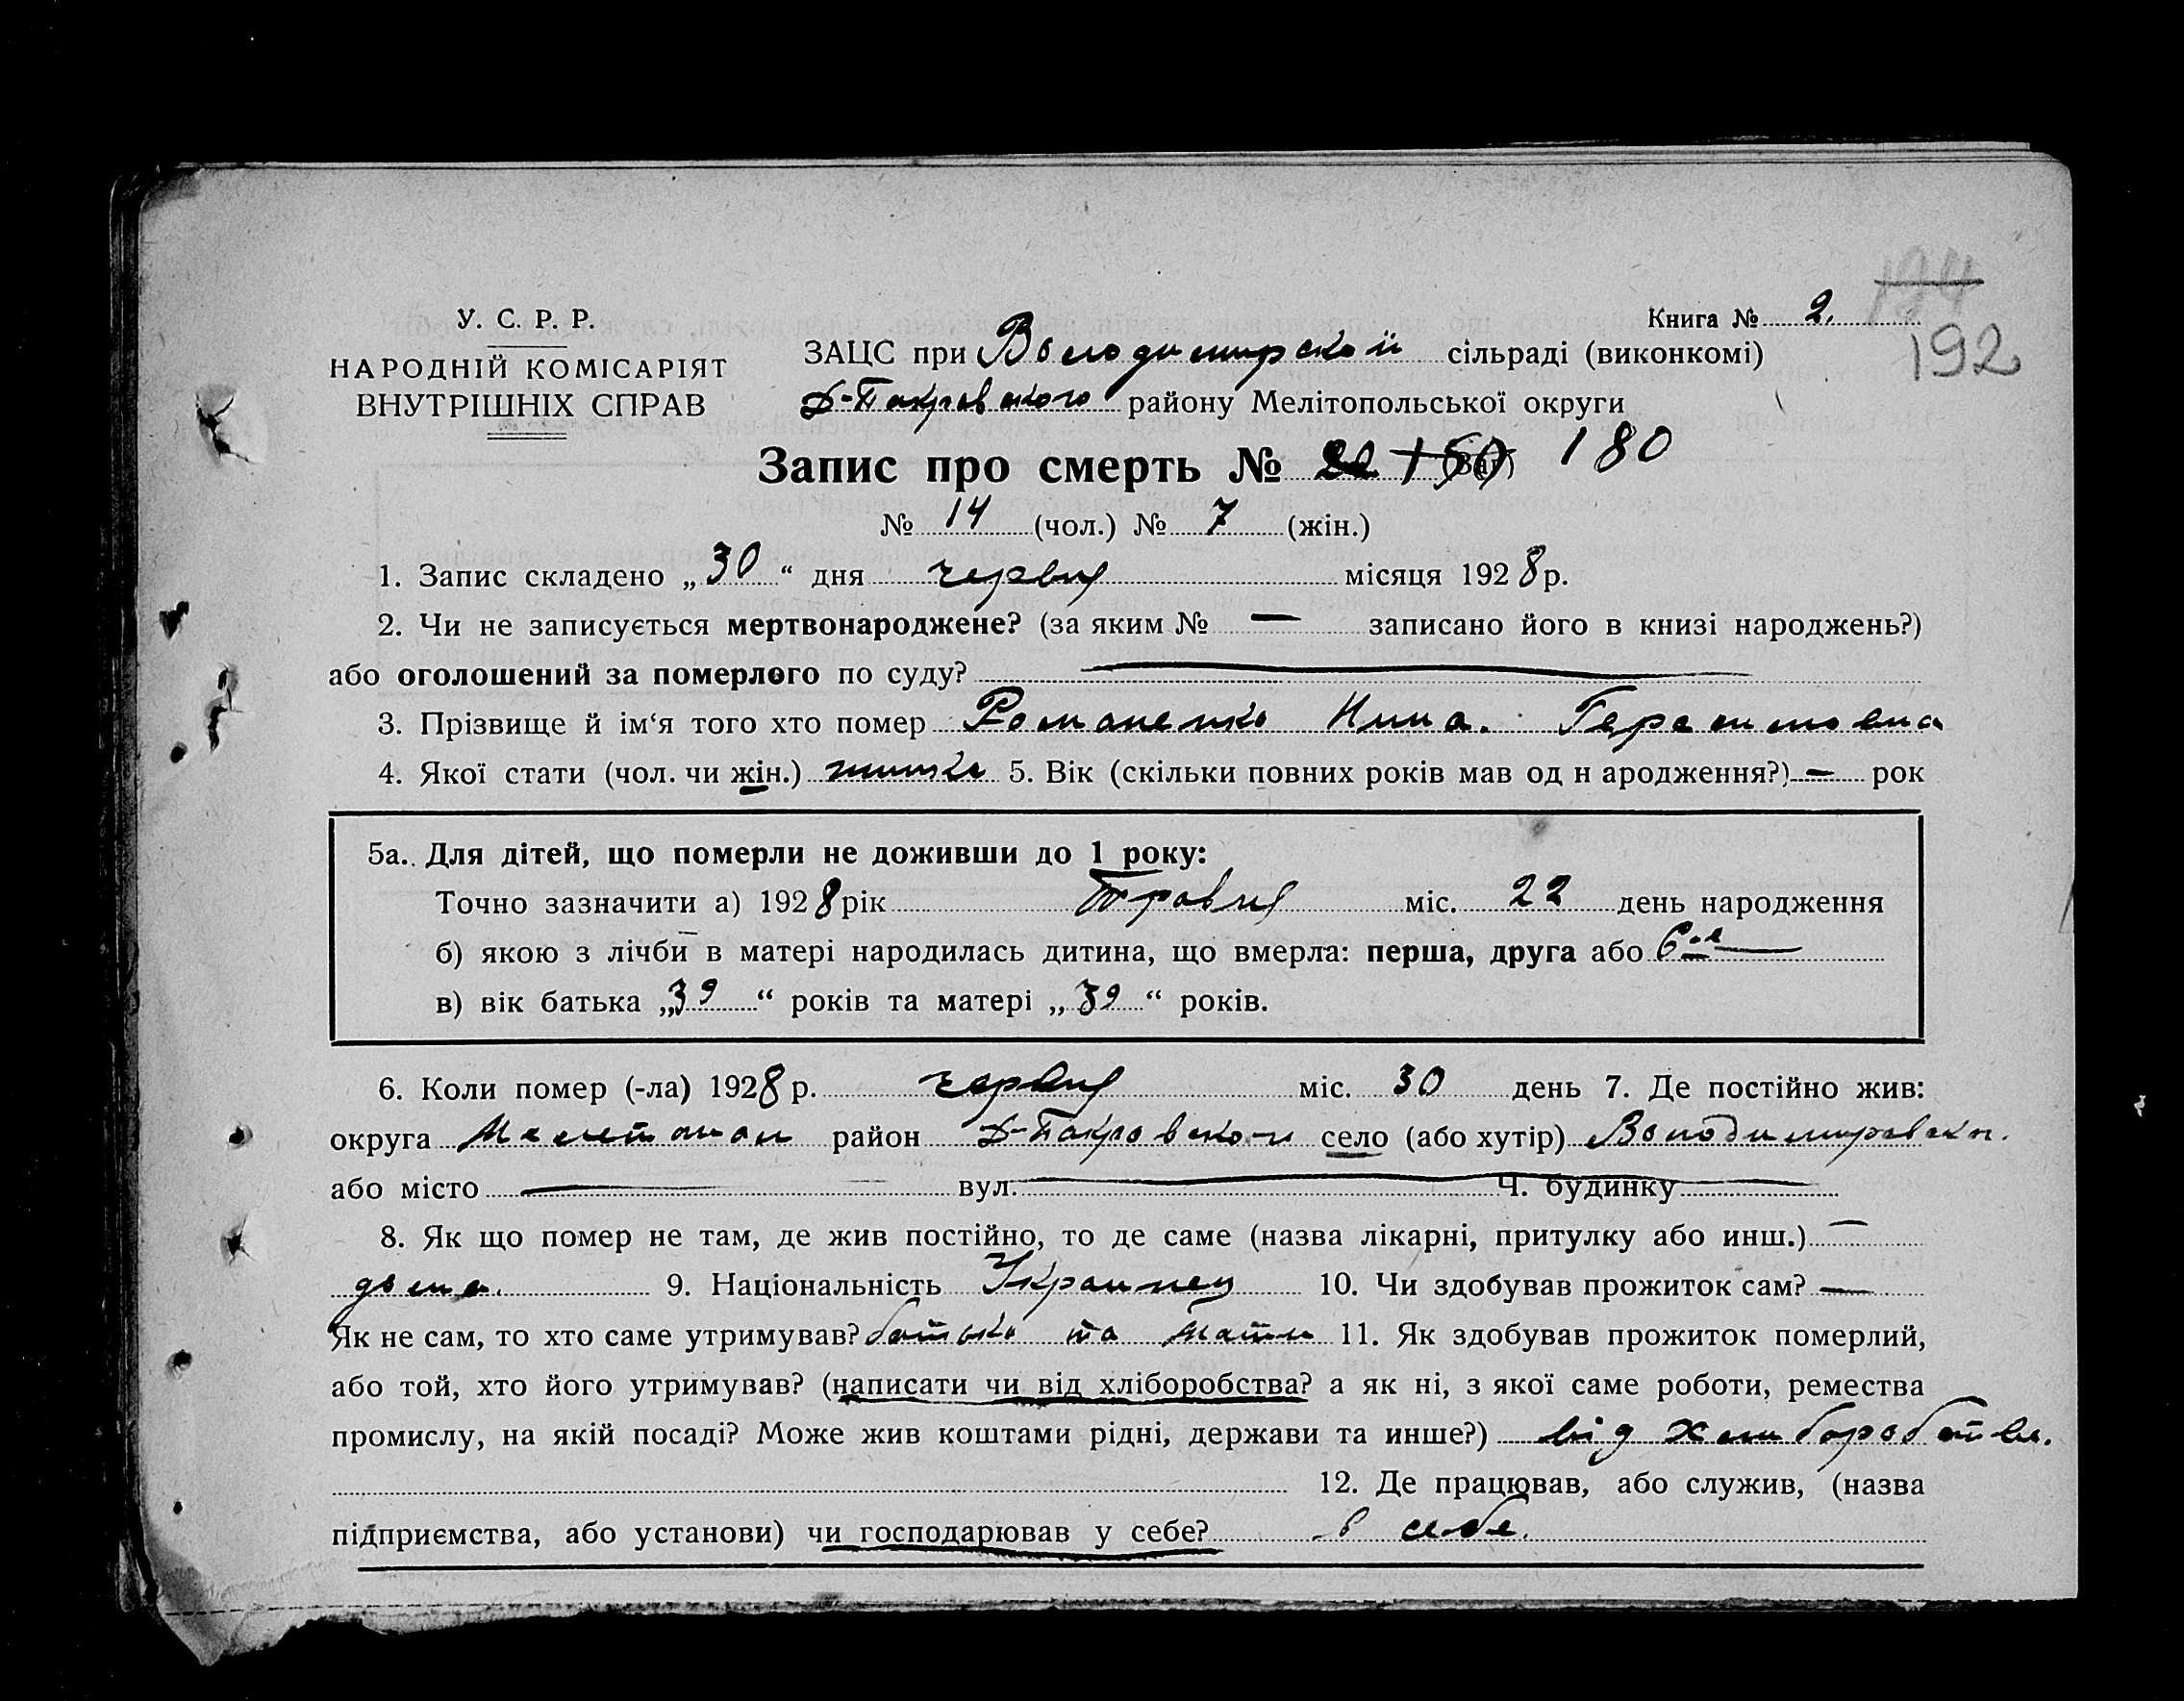 194
Книга № 2.
192
У. С. Р. Р.
НАРОДНІЙ КОМІСАРІЯТ
ВНУТРІШНІХ СПРАВ
ЗАЦС при Володимирскої сільраді (виконкомі)
Д-Покровського району Мелітопольської округи
Запис про смерть № 180
№ 14 (чол.) № 7 (жін.)
1. Запис складено „30“ дня червня місяця 1928 р.
2. Чи не записується мертвонароджене? (за яким № — записано його в книзі народжень?)
або оголошений за померлого по суду? —
3. Прізвище й ім‘я того хто помер Романенко Нина.
4. Якої стати (чол. чи жін.) жинка 5. Вік (скільки повних років мав од н ародження?) — рок
5а. Для дітей, що померли не доживши до 1 року:
Точно зазначити а) 1928 рік Травня міс. 22 день народження
б) якою з лічби в матері народилась дитина, що вмерла: перша, друга або 6-а
в) вік батька „39“ років та матері „39“ років.
6. Коли помер (-ла) 1928 р. червня міс. 30 день 7. Де постійно жив:
округа Мелитопол район Д-Покровской село (або хутір)
або місто — вул. — Ч. будинку —
8. Як що помер не там, де жив постійно, то де саме (назва лікарні, притулку або инш.) —
дома. 9. Національність Украинец 10. Чи здобував прожиток сам? —
Як не сам, то хто саме утримував? батько та мати 11. Як здобував прожиток померлий,
або той, хто його утримував? (написати чи від хліборобства? а як ні, з якої саме роботи, ремества
промислу, на якій посаді? Може жив коштами рідні, держави та инше?) від хлиборобства.
12. Де працював, або служив, (назва
підприємства, або установи) чи господарював у себе? в себе.